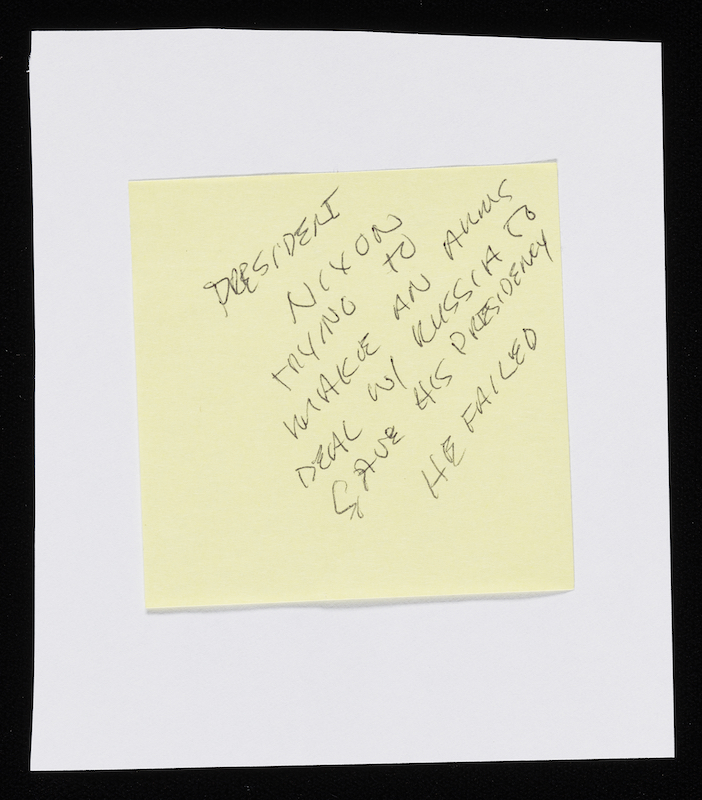 PRESIDENT
NIXON
TRYING TO
MAKE AN ARMS
DEAL W/ RUSSIA TO
SAVE HIS PRESIDENCY
HE FAILED